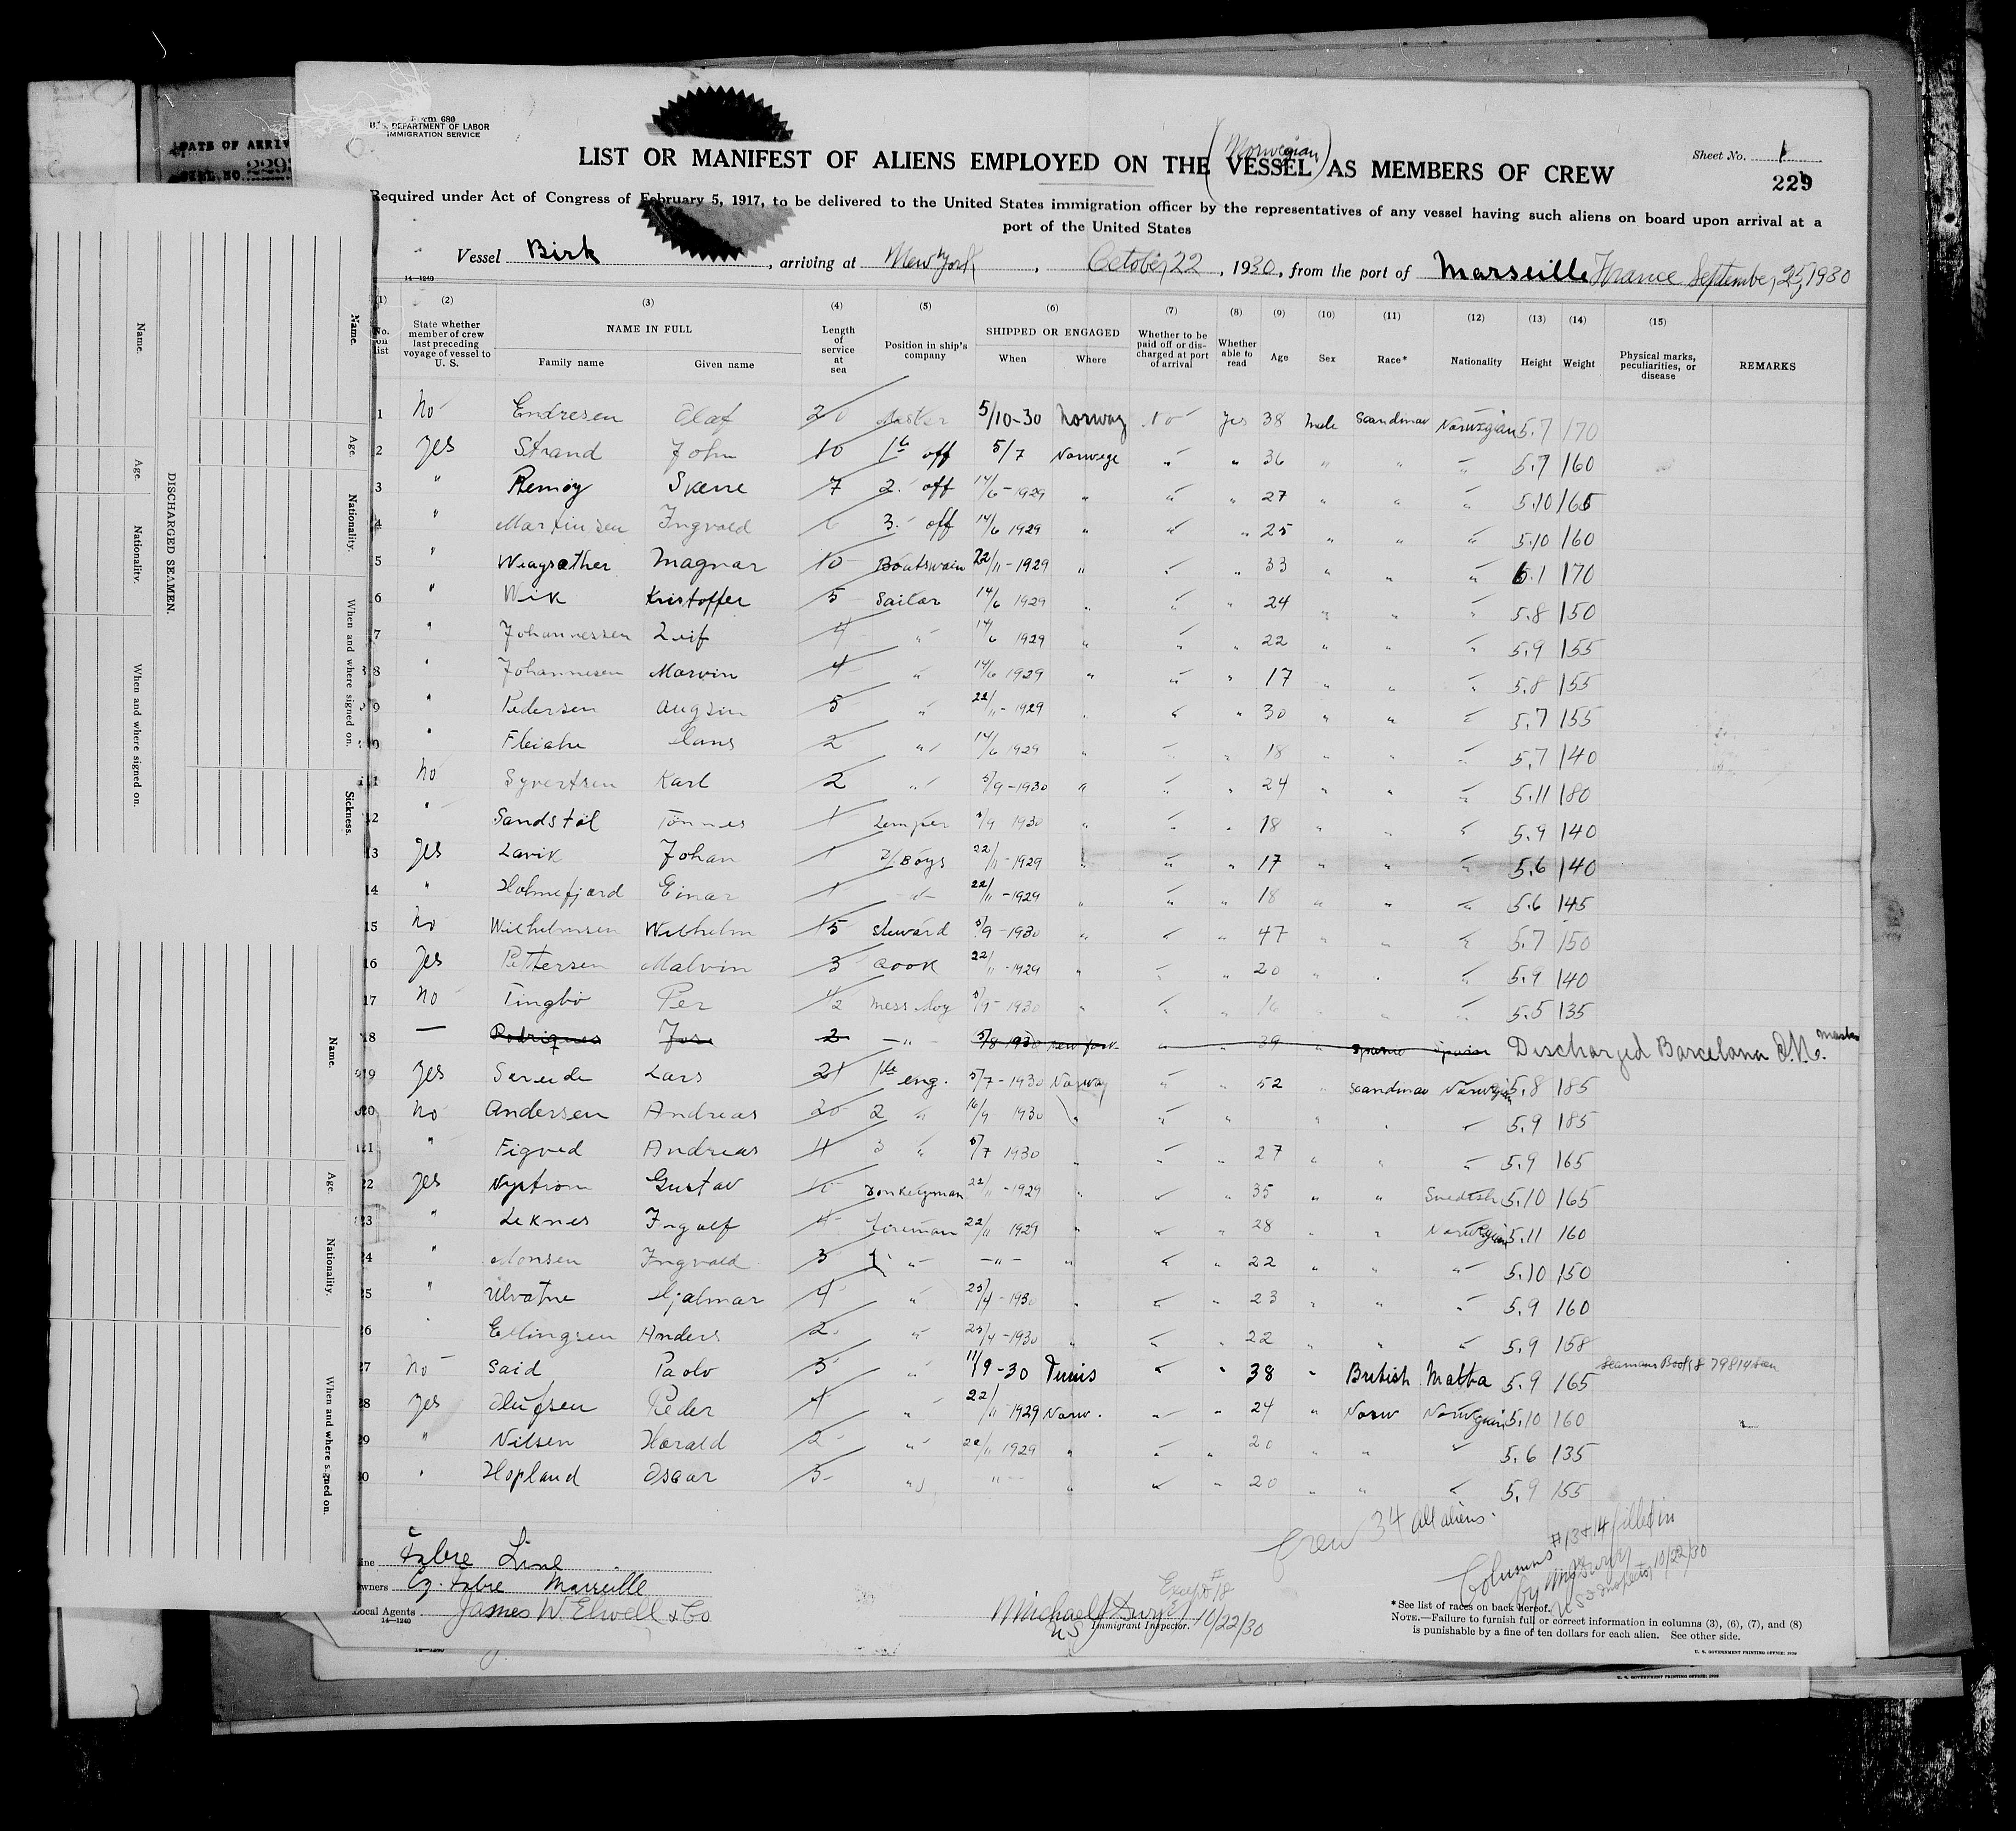 Form 680
U. S. DEPARTMENT OF LABOR
IMMIGRATION SERVICE
DATE OF ARRIV
Sheet No. 1
229
LIST OR MANIFEST OF ALIENS EMPLOYED ON THE (Norwegian) VESSEL AS MEMBERS OF CREW
Required under Act of Congress of February 5, 1917, to be delivered to the United States immigration officer by the representatives of any vessel having such aliens on board upon arrival at a
port of the United States
Vessel Birk, arriving at New York, October 22, 1930, from the port of Marseille France September 25, 1930
14—1240
(1) (2) (3) (4) (5) (6) (7) (8) (9) (10) (11) (12) (13) (14) (15)
No. on list State whether member of crew last preceding voyage of vessel to U. S. NAME IN FULL Family name Given name Length of service at sea Position in ship's company SHIPPED OR ENGAGED When Where Whether to be paid off or discharged at port of arrival Whether able to read Age Sex Race* Nationality Height Weight Physical marks, peculiarities, or disease REMARKS
1 No Endresen Olaf 20 Master 5/10-30 Norway no yes 38 male Scandinav Norwegian 5.7 170
2 yes Strand John 10 1st off 5/7 Norwege " " 36 " " " 5.7 160
3 " Remøy 7 2. off 14/6-1929 " " " 27 " " " 5.10 165
4 " Martinsen Ingvald 6 3. off 14/6 1929 " " " 25 " " " 5.10 160
5 " Magnar 10 Boatswain 22/11-1929 " " " 33 " " " 6.1 170
6 " Wik Kristoffer 5 Sailor 14/6 1929 " " " 24 " " " 5.8 150
7 " Johannessen Leif 4 " 14/6 1929 " " " 22 " " " 5.9 155
8 " Johannesen Marvin 4 " 14/6 1929 " " " 17 " " " 5.8 155
9 " Pedersen 5 " 22/11-1929 " " " 30 " " " 5.7 155
10 " Hans 2 " 14/6 1929 " " " 18 " " " 5.7 140
11 No Syvertsen Karl 2 " 5/9-1930 " " " 24 " " " 5.11 180
12 " Sandstøl Tønnes 1 5/9 1930 " " " 18 " " " 5.9 140
13 yes Lavik Johan 1 Boys 22/11-1929 " " " 17 " " " 5.6 140
14 " Holmefjord Einar 1 " 22/11-1929 " " " 18 " " " 5.6 145
15 No Wilhelmsen Wilhelm 15 Steward 5/9-1930 " " " 47 " " " 5.7 150
16 yes Pettersen Malvin 3 Cook 22/11-1929 " " " 20 " " " 5.9 140
17 No Tingbø Per 1/2 Mess boy 5/9-1930 " " " 16 " " " 5.5 135
18 — Rodrigues Jose 2 " 5/8 1930 New York " " 39 " Discharged Barcelona
19 yes Søreide Lars 21 1ste eng. 5/7-1930 Norway " " 52 " Scandinav Norwegian 5.8 185
20 No Andersen Andreas 20 2 " 16/9 1930 " " " " " " 5.9 185
21 " Figved Andreas 4 3 " 5/7 1930 " " " 27 " " " 5.9 165
22 yes Nystrøm Gustav Donkeyman 22/11-1929 " " " 35 " " Swedish 5.10 165
23 " Leknes Ingolf 4 Fireman 22/11 1929 " " " 28 " " Norwegian 5.11 160
24 " Monsen Ingvald 3 " " " " " 22 " " " 5.10 150
25 " Ulvatne Hjalmar 4 " 23/4-1930 " " " 23 " " " 5.9 160
26 " Ellingsen Anders 2 " 23/4-1930 " " " 22 " " " 5.9 158
27 No Said Paolo 3 " 11/9-30 Tunis " " 38 " British Malta 5.9 165 Seamans Book
28 yes Olufsen Peder 4 " 22/11-1929 Norw. " " 24 " Norw Norwegian 5.10 160
29 " Nilsen Harald 2 " 22/11 1929 " " " 20 " " " 5.6 135
30 " Hopland Oscar 3 " " " " " 20 " " " 5.9 155
Crew 34 all aliens.
Columns #13 & 14 filled in
by
US Inspector 10/22/30
Line Fabre Line
Owners Cy. Fabre Marseille
Local Agents James W. Elwell & Co
14—1240
Except #18
Michael J Dwyer 10/22/30
US Immigrant Inspector.
*See list of races on back hereof.
NOTE.—Failure to furnish full or correct information in columns (3), (6), (7), and (8)
is punishable by a fine of ten dollars for each alien. See other side.
U. S. GOVERNMENT PRINTING OFFICE: 1930
DISCHARGED SEAMEN.
Name. Age. Nationality. When and where signed on.
Name. Age. Nationality. When and where signed on. Sickness.
Name. Age. Nationality. When and where signed on.